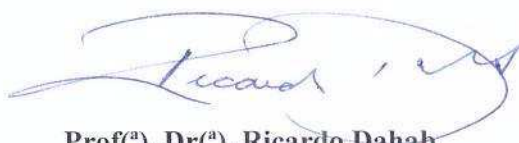 Ricardo
Prof(ª). Dr(ª). Ricardo Dahab